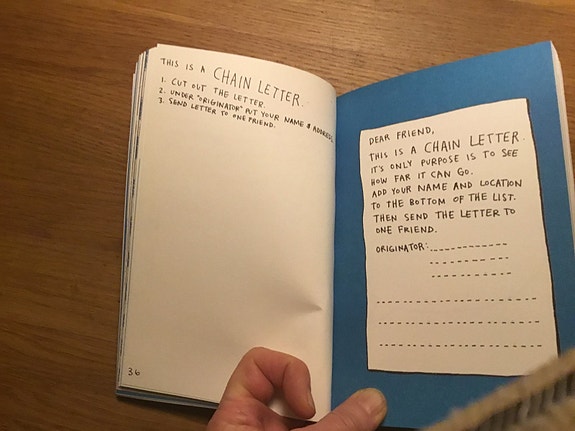 THIS IS A CHAIN LETTER.
1. CUT OUT THE LETTER.
2. UNDER "ORIGINATOR" PUT YOUR NAME & ADDRESS.
3. SEND LETTER TO ONE FRIEND.
36
DEAR FRIEND,
THIS IS A CHAIN LETTER.
IT'S ONLY PURPOSE IS TO SEE
HOW FAR IT CAN GO.
ADD YOUR NAME AND LOCATION
TO THE BOTTOM OF THE LIST.
THEN SEND THE LETTER TO
ONE FRIEND.
ORIGINATOR: